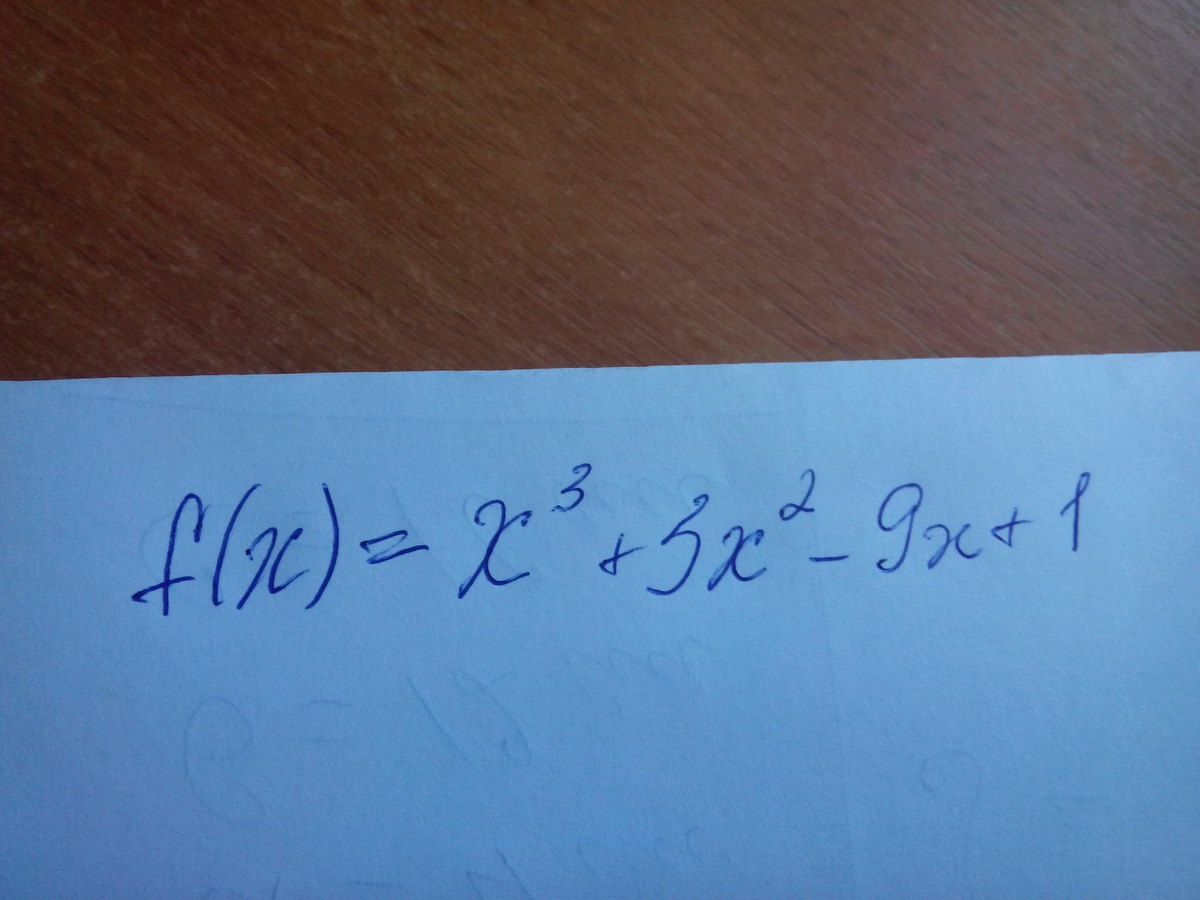 f(x) = x³ + 3x² - 9x + 1